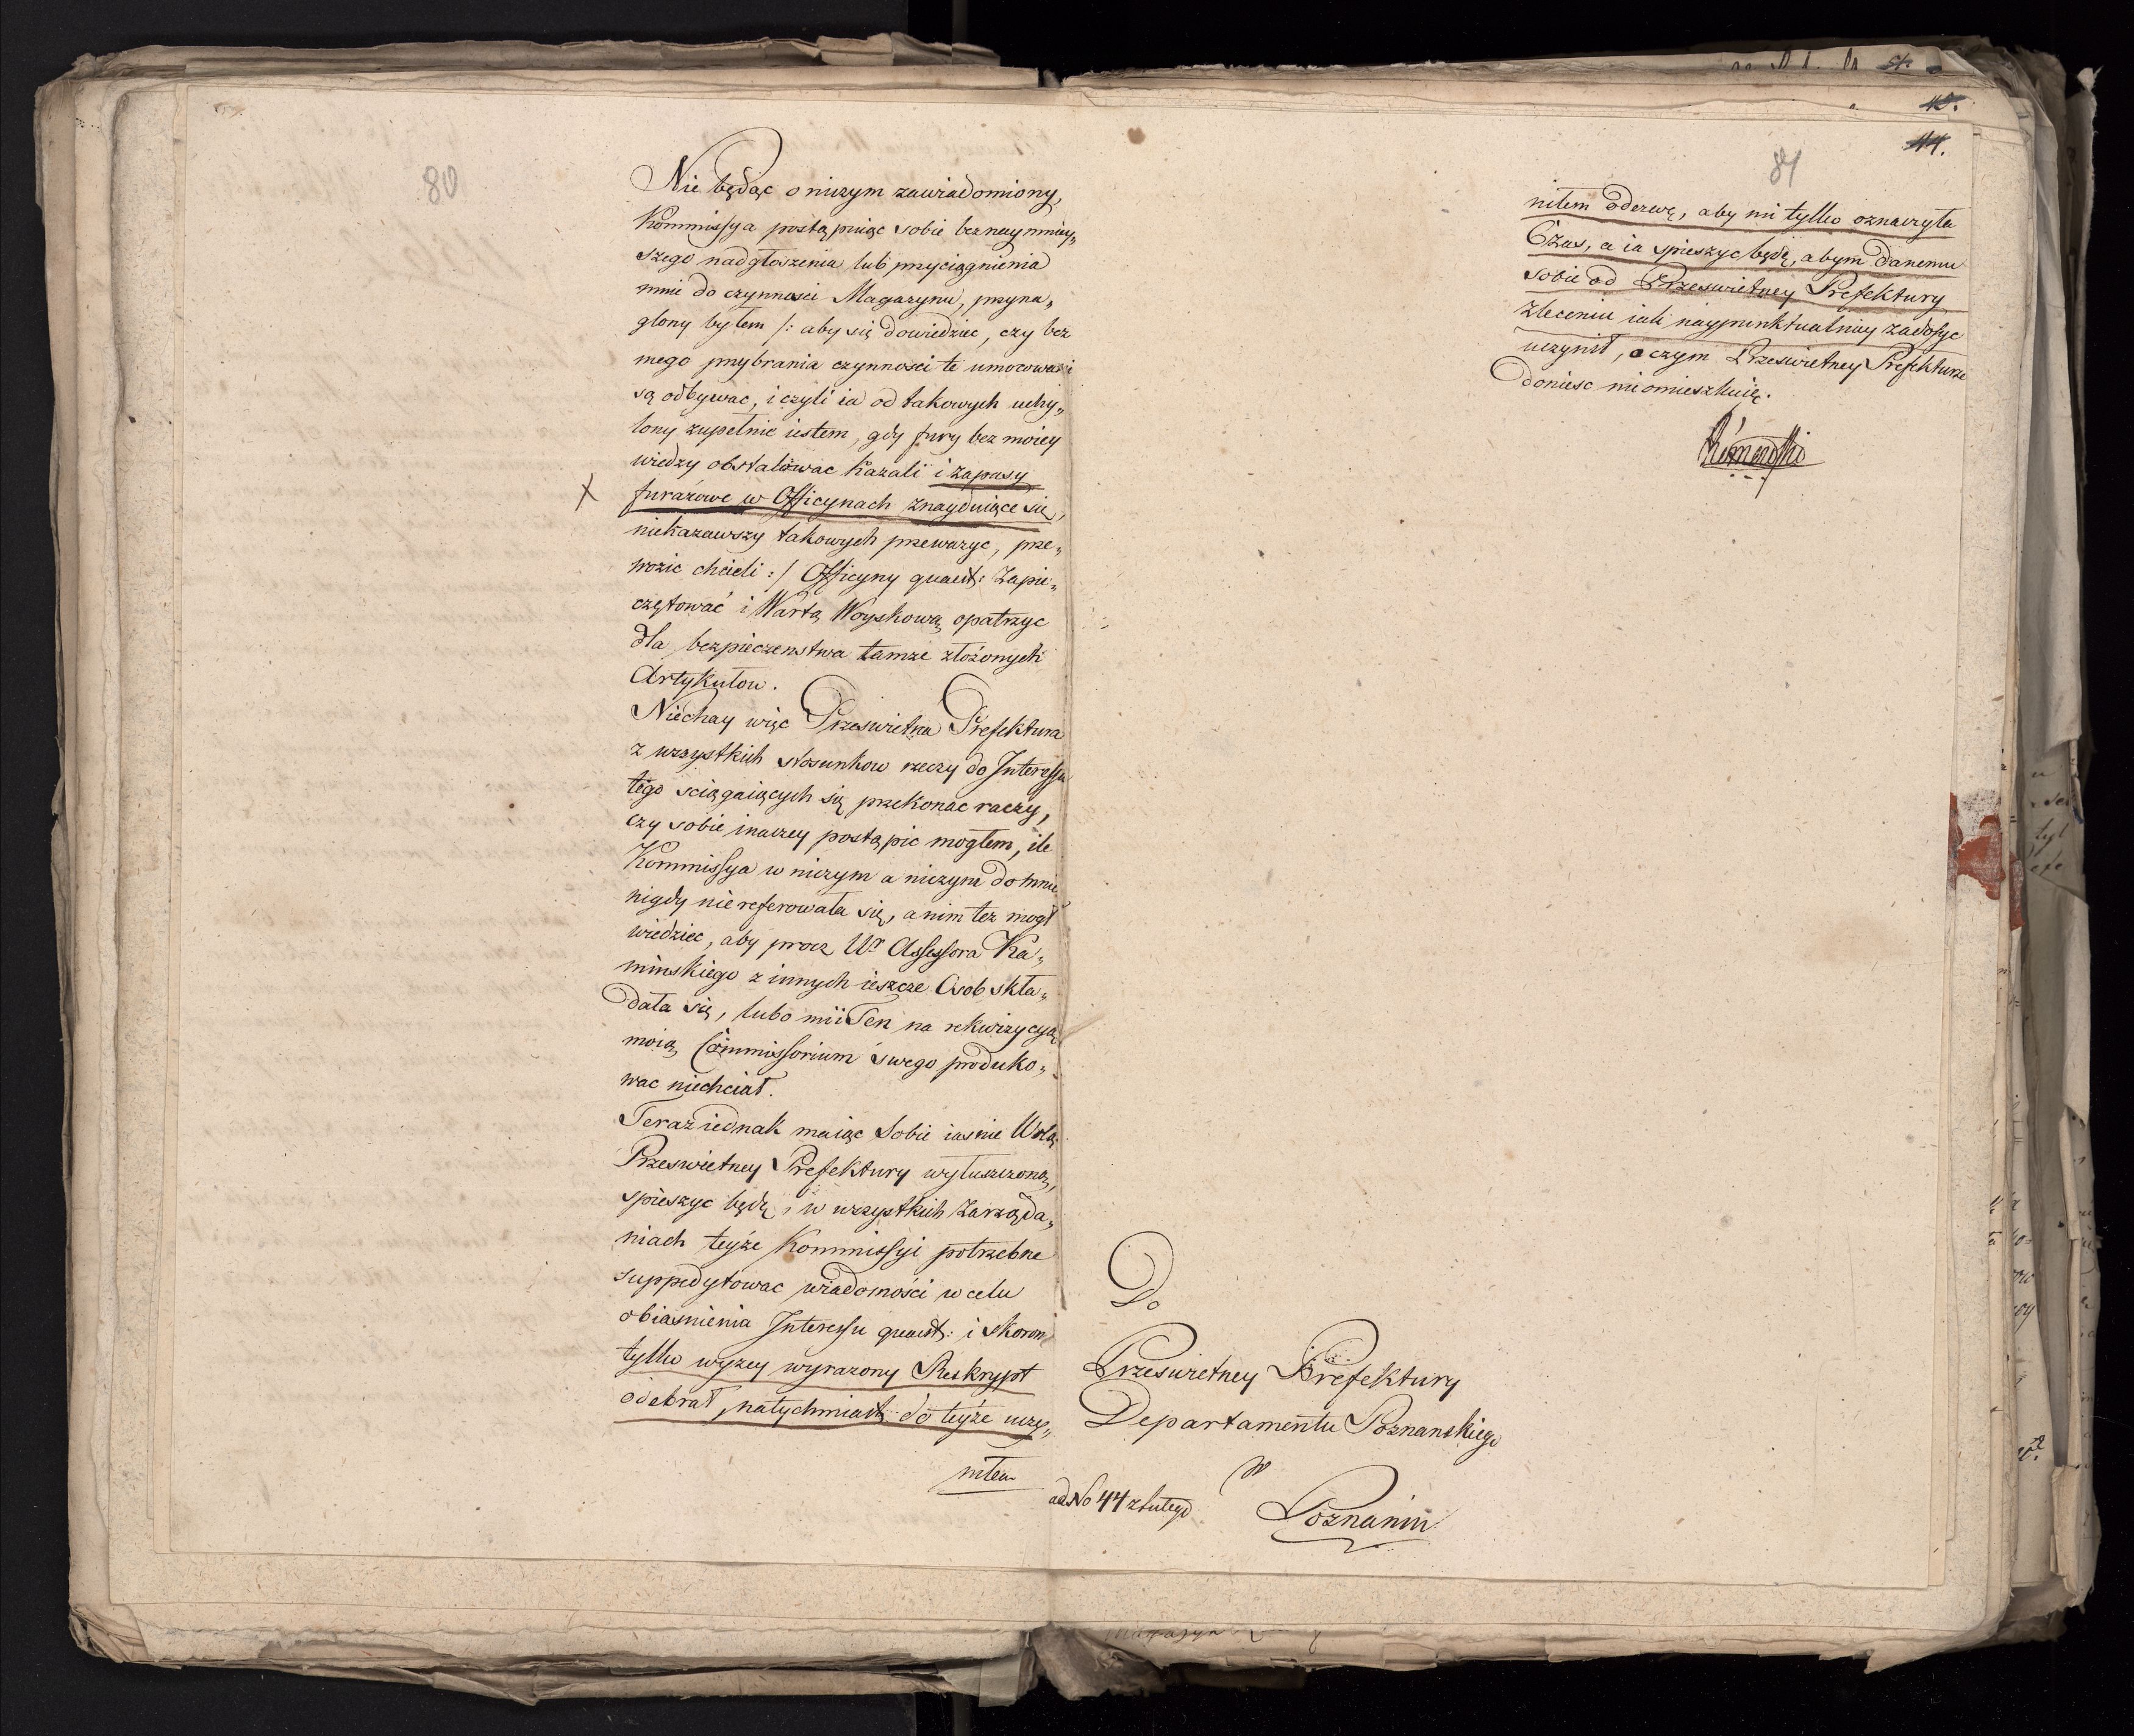 80
Nie będąc o niczym zawiadomiony,
Kommissya postąpiiąc sobie beznaymniey„
szego nadgłoszenia lub przyciągnienia
mnie do czynnosci Magazynu, przyna„
glony byłem /: aby się dowiedziec, czy bez
mego przybrania czynnosci te umocowani
są odbywac, i czyli ia od takowych uchy„
lony zupełnie iestem, gdy fury bez moiey
wiedzy obstalowac kazali i zapasy
X furażowe w Officynach znayduiące się,
niekazawszy takowych przewazyc, prze„
wozic chcieli :/ Officyny quaest: Zapie„
czętować i Wartą Woyskową opatrzyc
dla bezpieczenstwa tamze złożonych
Artykułow.
Niechay więc Przeswietna Prefektura
z wszystkich stosunkow rzeczy do Interessu
tego sciągaiących się przekonac raczy,
czy sobie inaczey postąpic mogłem, ile
Kommissya w niczym a niczym do mnie
nigdy niereferowała się, anim tez mogł
wiedziec, aby procz Ur Assessora Ka„
minskiego z innych ieszcze Osob skła„
dała się, lubo mi i Ten na rekwizycyą
moią Commissorium swego produko„
wac niechciał.
Teraz iednak maiąc Sobie iasnie Wolą
Przeswietney Prefektury wyłuszczoną,
spieszyc będę, w wszystkich Zarząda„
niach teyże Kommissyi potrzebne
suppedytowac wiadomości w celu
obiasnienia Interessu quaest: i skorom
tylko wyzey wyrazony Reskrypt
odebrał, natychmiast do teyże uczy„
niłem
44.
81
niłem odezwę, aby mi tylko oznaczyła
Czas, a ia spieszyc będę, abym danemu
sobie od Przeswietney Prefektury
Zleceniu iak naypunktualniey zadosyc
uczynił, o czym Przeswietney Prefekturze
doniesc nieomieszkuię.
Do
Przeswietney Prefektury
Departamentu Poznanskiego
w
Poznaniu
ad No 44 z Lutego